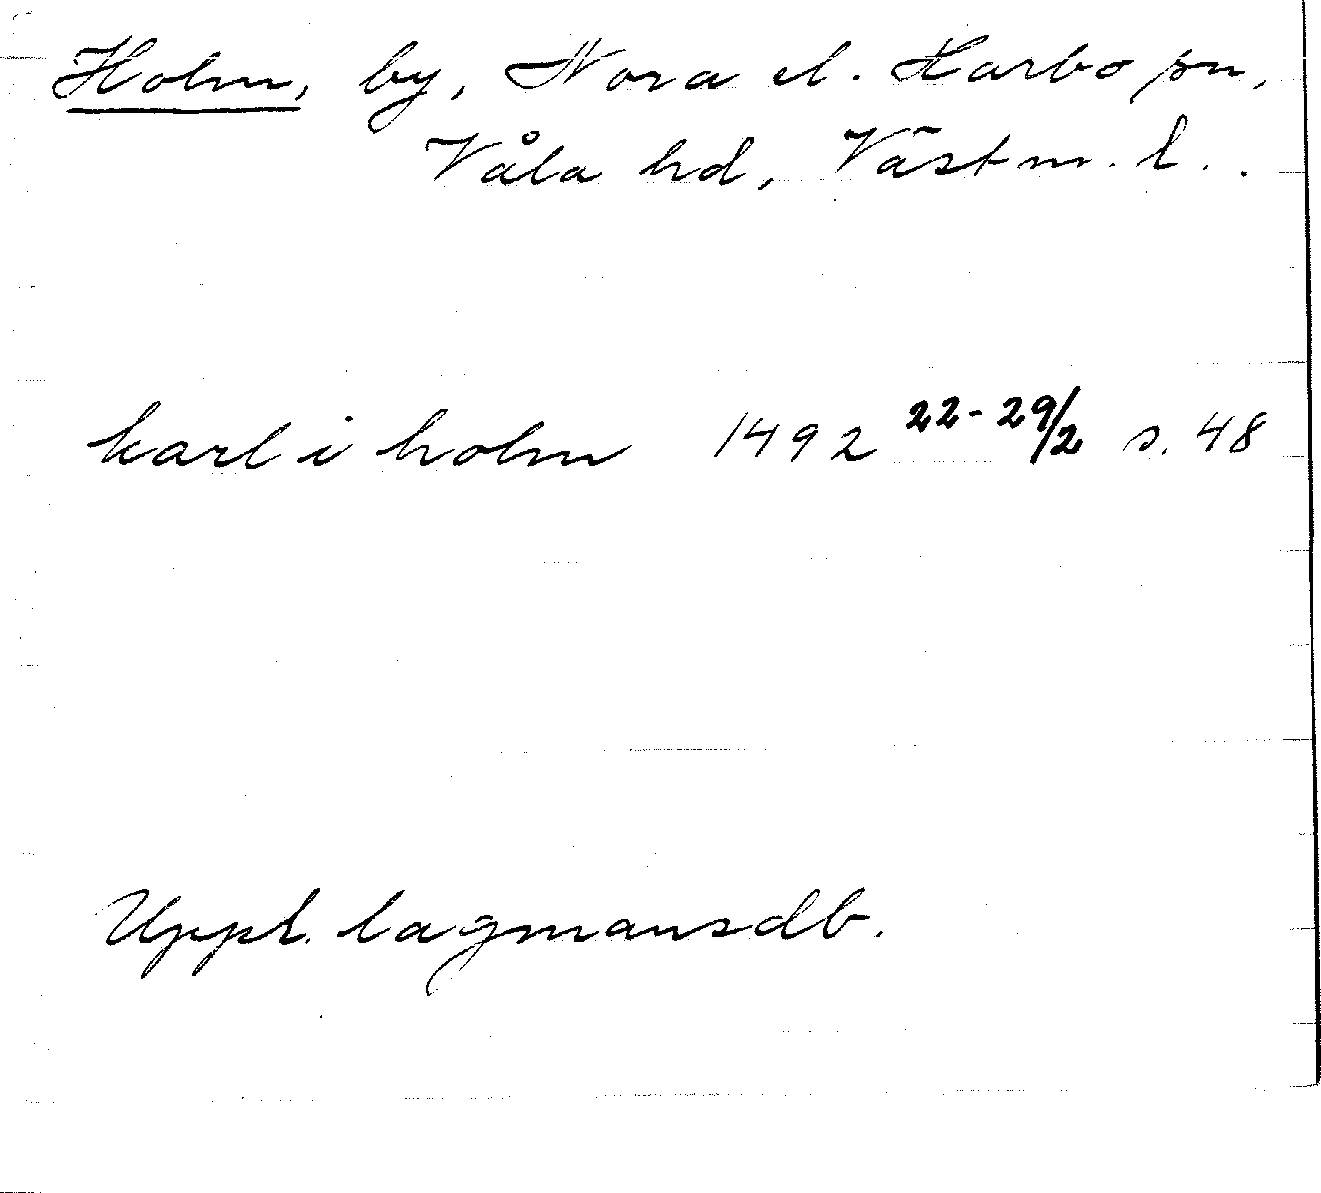 Holm, by, Nora el. Harbo sn,
Våla hd, Västm. l..
karl i holm 1492 22-29/2 s. 48
Uppl. lagmansdb.